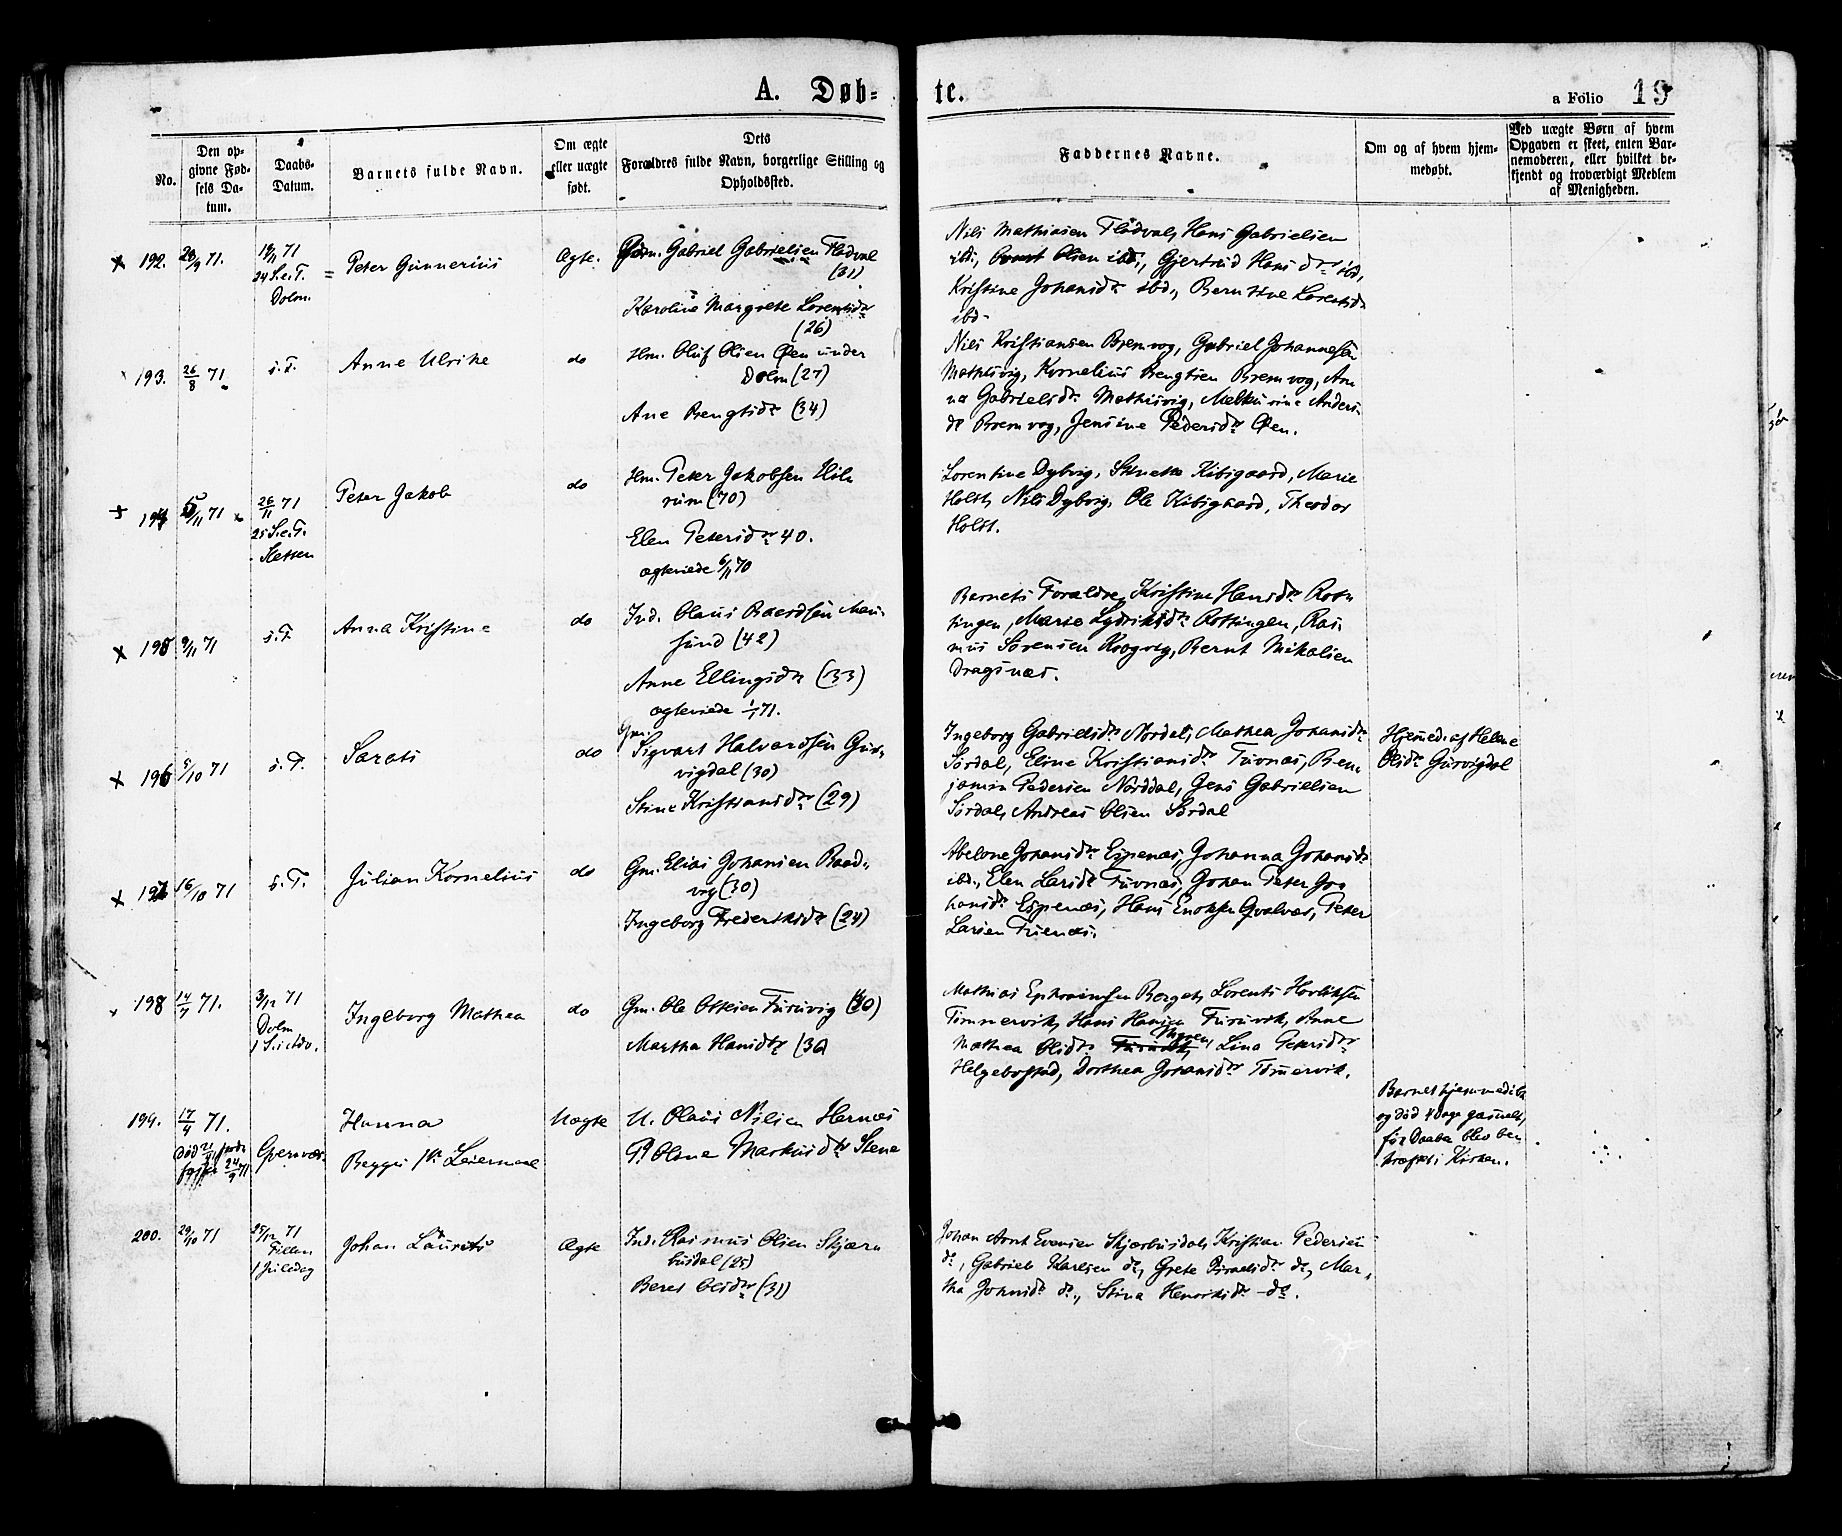 A. Døb- te.
a Folio 19
No.
Den op-
givne Fød-
sels Da-
tum.
Daabs-
Datum.
Barnets fulde Navn.
Om ægte
eller uægte
født.
Dets
Forældres fulde Navn, borgerlige Stilling og
Opholdssted.
Faddernes Navne.
Om og af hvem hjem-
medøbt.
Ved uægte Børn af hvem
Opgaven er skeet, enten Bar-
nemoderen, eller hvilket be-
kjendt og troværdigt Medlem
af Menigheden.
192. 28/9 71. 19/11 71
24 S. e. T.
Dolm.
Peter Gunnerius
Ægte.
Gabriel Gabrielsen Flodval
(31)
Karoline Margrete Lorentsdr
(26)
Nils Mathiasen Flodval, Hans Gabrielsen
ibd., Olsen ibd., Gjertrud Hansdr ibd,
Kristine Johansdr ibd., Berntine Lorentsdr
ibd.
193. 26/8 71 s. T. Anne Ulrike do
Hm. Oluf Olsen Øen under
Dolm (27)
Ane Bengtsdr (34)
Nils Kristiansen Bremvog, Gabriel Johannesen
Mathisvig, Kornelius Bengtsen Bremvog, An
na Gabrielsdr Mathisvig, Anders
dr Bremvog, Jensine Pedersdr Øen.
194 5/11 71 26/11 71
25 S. e. T.
Sletten
Peter Jakob do
Hm. Peter Jakobsen
(70)
Elen Petersdr 40.
ægteviede 6/11 70
Lorentine Dybvig, Kibsgaard, Marie
Holst, Nils Dybvig, Ole Kibsgaard, Theodor
Holst.
195 9/11 71 s. T. Anna Kristine do
Ind. Olaus Baardsen Mau
sund (42)
Anne Ellingsdr (33)
ægteviede 71.
Barnets Forældre, Kristine Hansdr Rot
tingen, Marie Rottingen, Ras
mus Sørensen Kragvig, Bernt Mikalsen
Dragsnæs.
196 5/10 71 s. T. Sarats do
Gm.
Sigvart Halvardsen Gur
vigdal (30)
Stine Kristiansdr (29)
Ingeborg Gabrielsdr Nordal, Mathea Johansdr
Sørdal, Eline Kristiansdr Turnæs, Ben
jamin Pedersen Norddal, Jens Gabrielsen
Sørdal, Andreas Olsen Sørdal
Hjemmed. af Helene
Olsdr Gurvigdal
197 16/10 71 s. T. Julian Kornelius do
Gm. Elias Johansen Baad
vig (30)
Ingeborg Frederiksdr (24)
Abelone Johansdr Espenæs, Johanna Johansdr
ibd., Elen Larsdr Turnæs, Johan Peter Jo
hansdr Espenæs, Hans Enoksen Qvalvær, Peter
Larsen
198 14/7 71. 3/12 71
Dolm
1 S. i Adv.
Ingeborg Mathea do
Gm. Ole Ottesen Furuvig (30)
Martha Hansdr (36
Mathias Ephraimsen Berget, Lorents
Tømmervik, Hans Hansen Furuvik, Anne
Mathea Olsdr Lina Petersdr
Helgebostad, Dorthea Johansdr Tømmervik.
199. 17/9 71.
Død 21/9
24/9 71
Hanna
Begges 1ste Leiermaal
Uægte
U. Olaus Nilsen Hernæs
P. Oline Markusdr Stene
Barnet hjemmedøbt
og død 4 Dage gammelt,
før Daaben blev be
kræftet i Kirken.
200. 29/10 71 25/12 71
Fillan
1 Juledag
Johan Laurits
Ægte
Ind. Rasmus Olsen Skjær
busdal (25)
Beret Olsdr (31)
Johan Arnt Evensen Skjærbusdal, Kristian Pedersen
do, Gabriel Karlsen do, Grete do, Mar
tha Johnsdr do, Stina Henriksdr do.